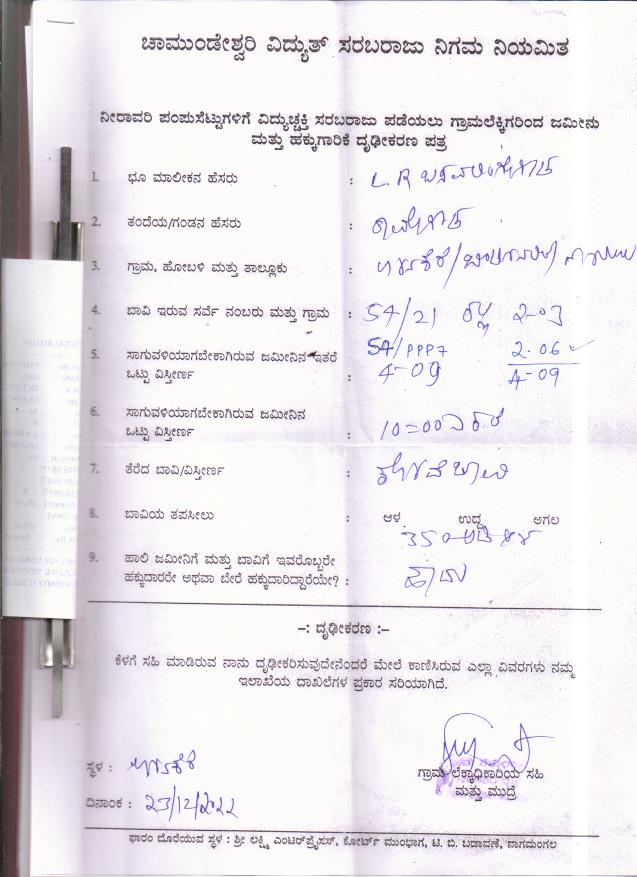 ಚಾಮುಂಡೇಶ್ವರಿ ವಿದ್ಯುತ್ ಸರಬರಾಜು ನಿಗಮ ನಿಯಮಿತ
ನೀರಾವರಿ ಪಂಪುಸೆಟ್ಟುಗಳಿಗೆ ವಿದ್ಯುಚ್ಛಕ್ತಿ ಸರಬರಾಜು ಪಡೆಯಲು ಗ್ರಾಮಲೆಕ್ಕಿಗರಿಂದ ಜಮೀನು
ಮತ್ತು ಹಕ್ಕುಗಾರಿಕೆ ದೃಢೀಕರಣ ಪತ್ರ
1. ಭೂ ಮಾಲೀಕನ ಹೆಸರು : L.R
2. ತಂದೆಯ/ಗಂಡನ ಹೆಸರು :
3. ಗ್ರಾಮ, ಹೋಬಳಿ ಮತ್ತು ತಾಲ್ಲೂಕು :
4. ಬಾವಿ ಇರುವ ಸರ್ವೆ ನಂಬರು ಮತ್ತು ಗ್ರಾಮ : 54/21 2-03
5. ಸಾಗುವಳಿಯಾಗಬೇಕಾಗಿರುವ ಜಮೀನಿನ ಇತರೆ 54/PPP7 2.06
ಒಟ್ಟು ವಿಸ್ತೀರ್ಣ : 4-09 4-09
6. ಸಾಗುವಳಿಯಾಗಬೇಕಾಗಿರುವ ಜಮೀನಿನ
ಒಟ್ಟು ವಿಸ್ತೀರ್ಣ : 10=00 ಎಕರೆ
7. ತೆರೆದ ಬಾವಿ/ವಿಸ್ತೀರ್ಣ : ಕೊಳವೆ ಬಾವಿ
8. ಬಾವಿಯ ತಪಸೀಲು : ಆಳ ಉದ್ದ ಅಗಲ
350
9. ಹಾಲಿ ಜಮೀನಿಗೆ ಮತ್ತು ಬಾವಿಗೆ ಇವರೊಬ್ಬರೇ
ಹಕ್ಕುದಾರರೇ ಅಥವಾ ಬೇರೆ ಹಕ್ಕುದಾರಿದ್ದಾರೆಯೇ? : ಹೌದು
–: ದೃಢೀಕರಣ :–
ಕೆಳಗೆ ಸಹಿ ಮಾಡಿರುವ ನಾನು ದೃಢೀಕರಿಸುವುದೇನೆಂದರೆ ಮೇಲೆ ಕಾಣಿಸಿರುವ ಎಲ್ಲಾ ವಿವರಗಳು ನಮ್ಮ
ಇಲಾಖೆಯ ದಾಖಲೆಗಳ ಪ್ರಕಾರ ಸರಿಯಾಗಿದೆ.
ಸ್ಥಳ :
ಗ್ರಾಮ ಲೆಕ್ಕಾಧಿಕಾರಿಯ ಸಹಿ
ಮತ್ತು ಮುದ್ರೆ
ದಿನಾಂಕ : 23/12/2022
ಫಾರಂ ದೊರೆಯುವ ಸ್ಥಳ : ಶ್ರೀ ಲಕ್ಷ್ಮಿ ಎಂಟರ್‌ಪ್ರೈಸಸ್, ಕೋರ್ಟ್ ಮುಂಭಾಗ, ಟಿ. ಬಿ. ಬಡಾವಣೆ, ನಾಗಮಂಗಲ